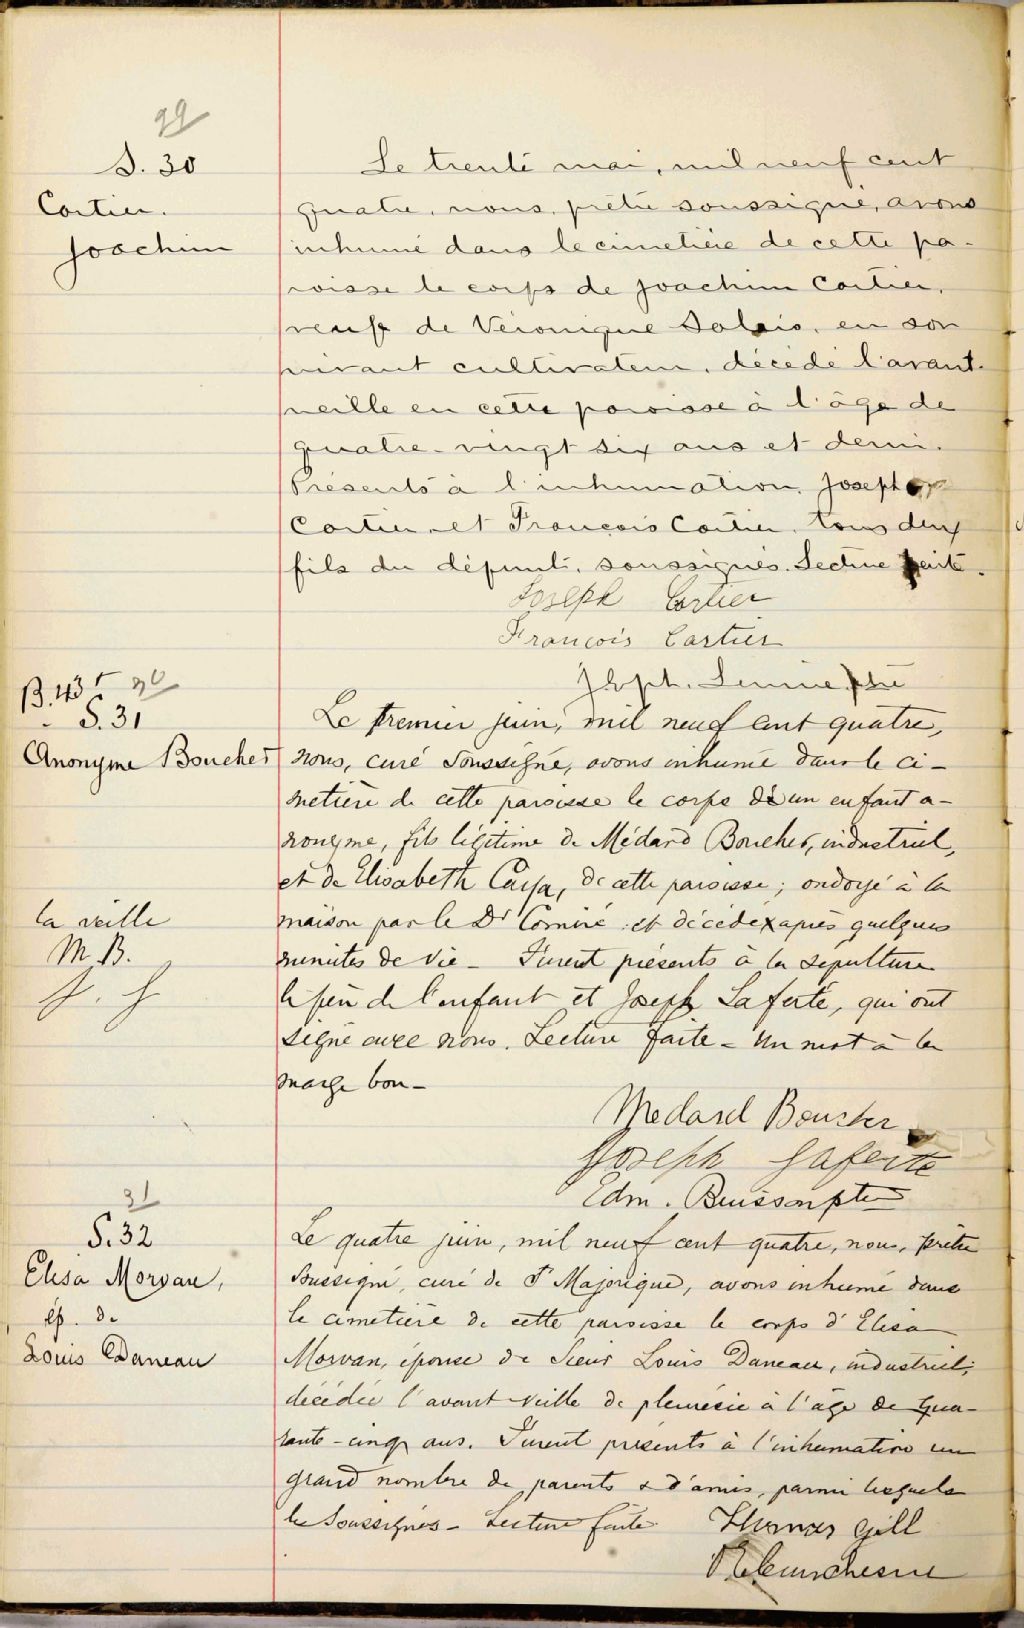 29
S. 30
Cartier.
Joachim
Le trente mai, mil neuf cent
quatre, nous, prêtre soussigné, avons
inhumé dans le cimetière de cette pa-
roisse le corps de Joachim Cartier,
veuf de Véronique Salois, en son
vivant cultivateur, décédé l'avant-
veille en cette paroisse à l'âge de
quatre-vingt six ans et demi.
Présents à l'inhumation, Joseph
Cartier et François Cartier, tous deux
fils du défunt, soussignés. Lecture faite.
Joseph Cartier
François Cartier
Jos. ptre
B. 43 30
S. 31
Anonyme Boucher
Le premier juin, mil neuf cent quatre,
nous, curé soussigné, avons inhumé dans le ci-
metière de cette paroisse le corps d'un enfant a-
nonyme, fils légitime de Médard Boucher, industriel,
et de Elisabeth Caya, de cette paroisse; ondoyé à la
maison par le Dr et décédé x après quelques
minutes de vie - Furent présents à la sépulture
le père de l'enfant et Joseph Laferté, qui ont
signé avec nous. Lecture faite - Un mot à la
marge bon -
la veille
M. B.
J. L.
Medard Boucher
Joseph Laferté
Edm. Buisson ptre
31
S. 32
Elisa Morvan,
ép. de
Louis Daneau
Le quatre juin, mil neuf cent quatre, nous, prêtre
soussigné, curé de St Majorique, avons inhumé dans
le cimetière de cette paroisse le corps d'Elisa
Morvan, épouse de Sieur Louis Daneau, industriel,
décédée l'avant-veille de pleurésie à l'âge de qua-
rante-cinq ans. Furent présents à l'inhumation un
grand nombre de parents & d'amis, parmi lesquels
les soussignés - Lecture faite
Thomas Gill